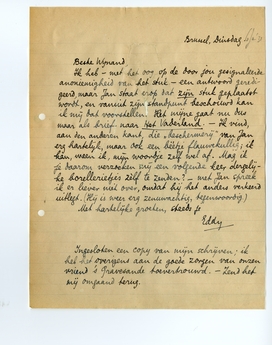 Brussel, Dinsdag
Beste Wijnand,
Ik heb – met het oog op de door jou gesignaleerde
anoniemigheid van het stuk – een antwoord geredi-
geerd, maar Jan staat erop dat zijn stuk geplaatst
wordt, en vanuit zijn standpunt beschouwd kan
ik mij dat voorstellen. Het mijne gaat nu dus
maar als brief naar Het Vaderland. – Ik vind,
aan den anderen kant, die „bescherming” van Jan
erg hartelijk, maar ook een beetje flauwkullig; ik
kan, weet ik, mijn woordje zelf wel af. Mag ik
je daarom verzoeken mij een volgende keer dergelij-
ke borellerietjes zelf te zenden? – met Jan spreek
ik er liever niet over, omdat hij het anders verkeerd
uitlegt. (Hij is weer erg zenuwachtig, tegenwoordig.)
Met hartelijke groeten, steeds je
Eddy
Ingesloten een copy van mijn schrijven; ik
heb het overigens aan de goede zorgen van onzen
vriend 's Gravesande toevertrouwd. – Zend het
mij omgaand terug.